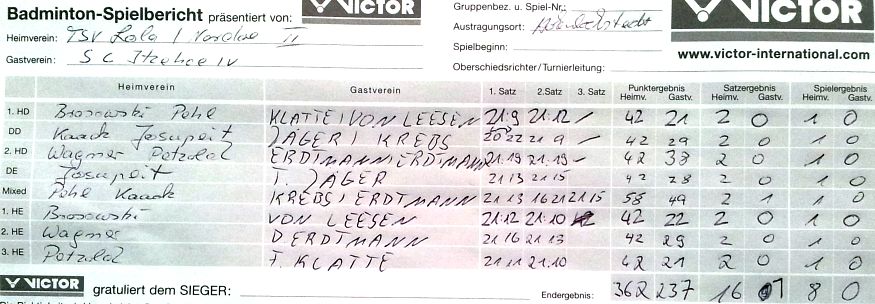 Badminton-Spielbericht präsentiert von: VICTOR
Gruppenbez. u. Spiel-Nr.:
VICTOR
Heimverein: TSV Lola / II
Austragungsort:
Gastverein: S C Itzehoe IV
Spielbeginn:
www.victor-international.com
Oberschiedsrichter/Turnierleitung:
Heimverein Gastverein 1. Satz 2.Satz 3. Satz Punktergebnis Heimv. Gastv. Satzergebnis Heimv. Gastv. Spielergebnis Heimv. Gastv.
1. HD Brosowski Pohl KLATTE / VON LEESEN 21:9 21:12 / 42 21 2 0 1 0
DD Kaack Josupeit JÄGER / KREBS 22 21 9 / 42 29 2 0 1 0
2. HD Wagner Petzold ERDTMANN / ERDTMANN 21.19 21.19 - 42 38 2 0 1 0
DE Josupeit T. JÄGER 21 13 21 15 42 28 2 0 1 0
Mixed Pohl Kaack KREBS / ERDTMANN 21 13 16 21 21 15 58 49 2 1 1 0
1. HE Brosowski VON LEESEN 21:12 21:10 42 22 2 0 1 0
2. HE Wagner D. ERDTMANN 21 16 21 13 42 29 2 0 1 0
3. HE Petzold T. KLATTE 21 11 21.10 42 21 2 0 1 0
VICTOR gratuliert dem SIEGER: Endergebnis: 362 237 16 1 8 0